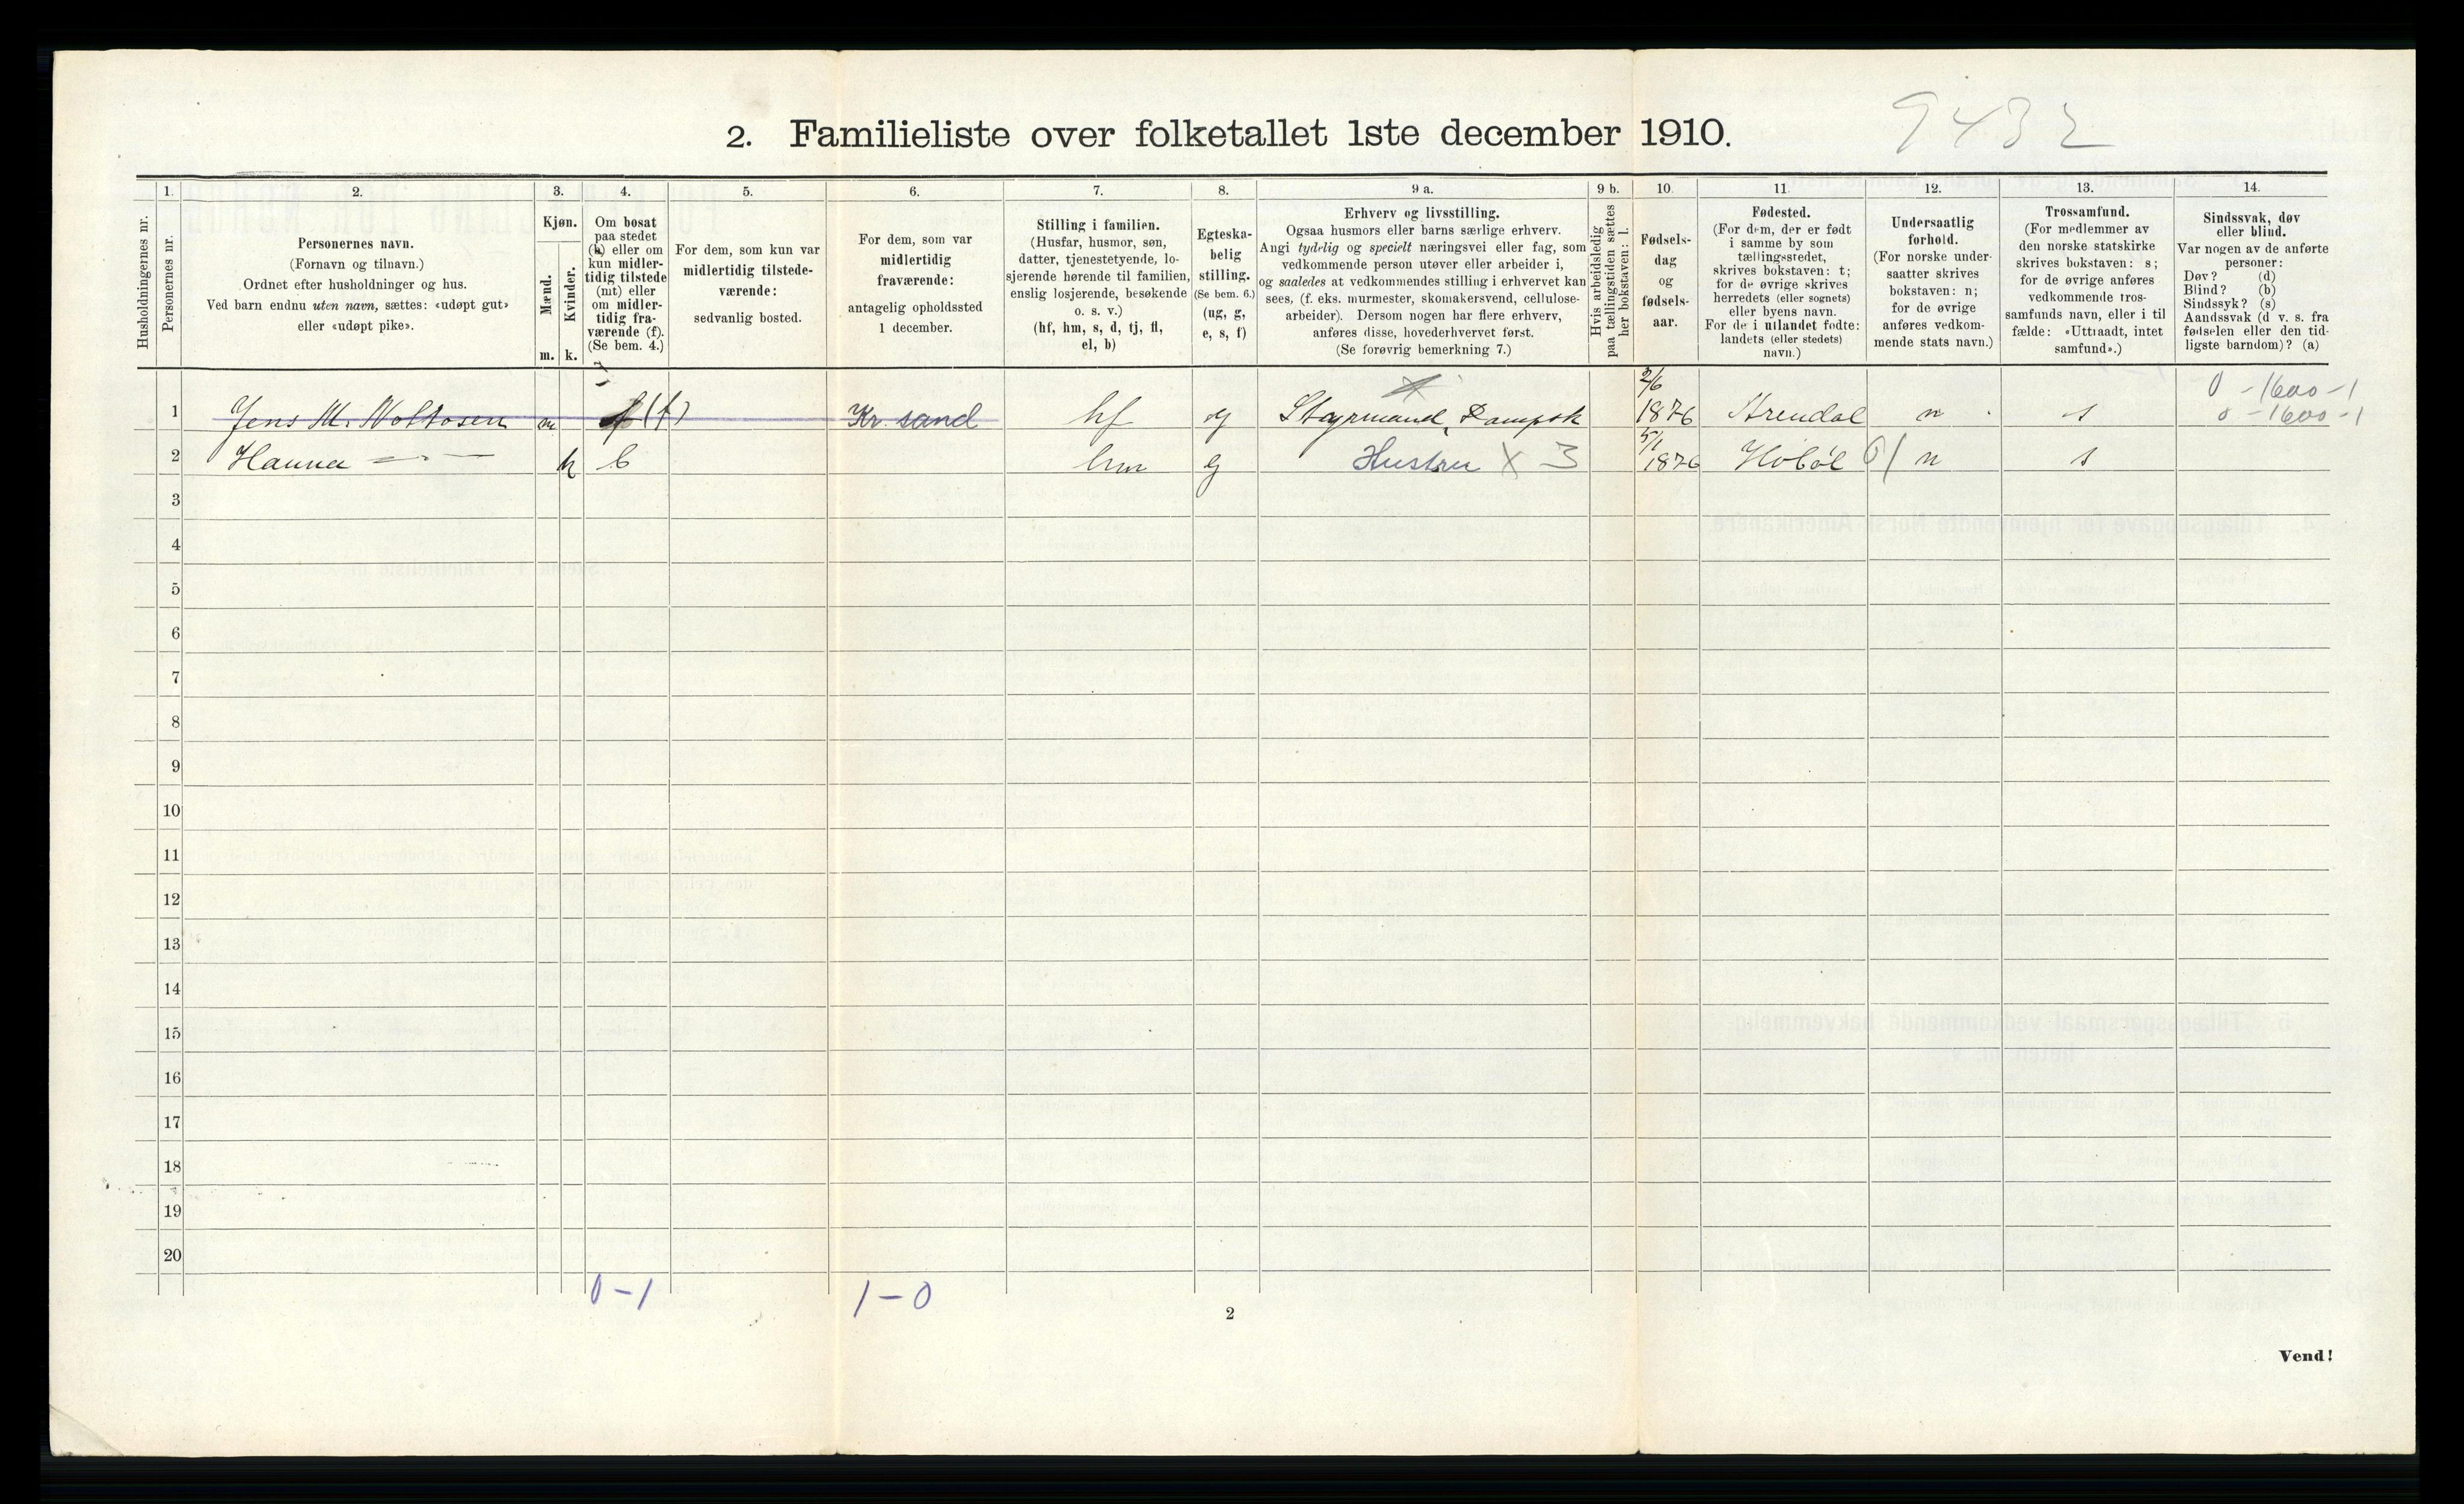 9432
2. Familieliste over folketallet 1ste december 1910.
1. 2. 3. 4. 5. 6. 7. 8. 9 a. 9 b. 10. 11. 12. 13. 14.
Husholdningernes nr.
Personernes nr.
Personernes navn.
(Fornavn og tilnavn.)
Ordnet efter husholdninger og hus.
Ved barn endnu uten navn, sættes: «udøpt gut»
eller «udøpt pike».
Kjøn.
Mænd.
Kvinder.
m. k.
Om bosat
paa stedet
(b) eller om
kun midler-
tidig tilstede
(mt) eller
om midler-
tidig fra-
værende (f).
(Se bem. 4.)
For dem, som kun var
midlertidig tilstede-
værende:
sedvanlig bosted.
For dem, som var
midlertidig
fraværende:
antagelig opholdssted
1 december.
Stilling i familien.
(Husfar, husmor, søn,
datter, tjenestetyende, lo-
sjerende hørende til familien,
enslig losjerende, besøkende
o. s. v.)
(hf, hm, s, d, tj, fl,
el, b)
Egteska-
belig
stilling.
(Se bem. 6.)
(ug, g,
e, s, f)
Erhverv og livsstilling.
Ogsaa husmors eller barns særlige erhverv.
Angi tydelig og specielt næringsvei eller fag, som
vedkommende person utøver eller arbeider i,
og saaledes at vedkommendes stilling i erhvervet kan
sees, (f. eks. murmester, skomakersvend, cellulose-
arbeider). Dersom nogen har flere erhverv,
anføres disse, hovederhvervet først.
(Se forøvrig bemerkning 7.)
Hvis arbeidsledig
paa tællingstiden sættes
her bokstaven: l.
Fødsels-
dag
og
fødsels-
aar.
Fødested.
(For dem, der er født
i samme by som
tællingsstedet,
skrives bokstaven: t;
for de øvrige skrives
herredets (eller sognets)
eller byens navn.
For de i utlandet fødte:
landets (eller stedets)
navn.)
Undersaatlig
forhold.
(For norske under-
saatter skrives
bokstaven: n;
for de øvrige
anføres vedkom-
mende stats navn.)
Trossamfund.
(For medlemmer av
den norske statskirke
skrives bokstaven: s;
for de øvrige anføres
vedkommende tros-
samfunds navn, eller i til
fælde: «Uttraadt, intet
samfund».)
Sindssvak, døv
eller blind.
Var nogen av de anførte
personer:
Døv? (d)
Blind? (b)
Sindssyk? (s)
Aandssvak (d v. s. fra
fødselen eller den tid-
ligste barndom)? (a)
0 - 1600 - 1
1 Jens M. m (f) Kr. sand hf g Styrmand, Dampsk 2/6 1876 Arendal n s 0 - 1600 - 1
2 Hanna — " — k b hm g Hustru X 3 5/1 1876 Høbøl n s
3
4
5
6
7
8
9
10
11
12
13
14
15
16
17
18
19
20
0 - 1 1 - 0
2
Vend!